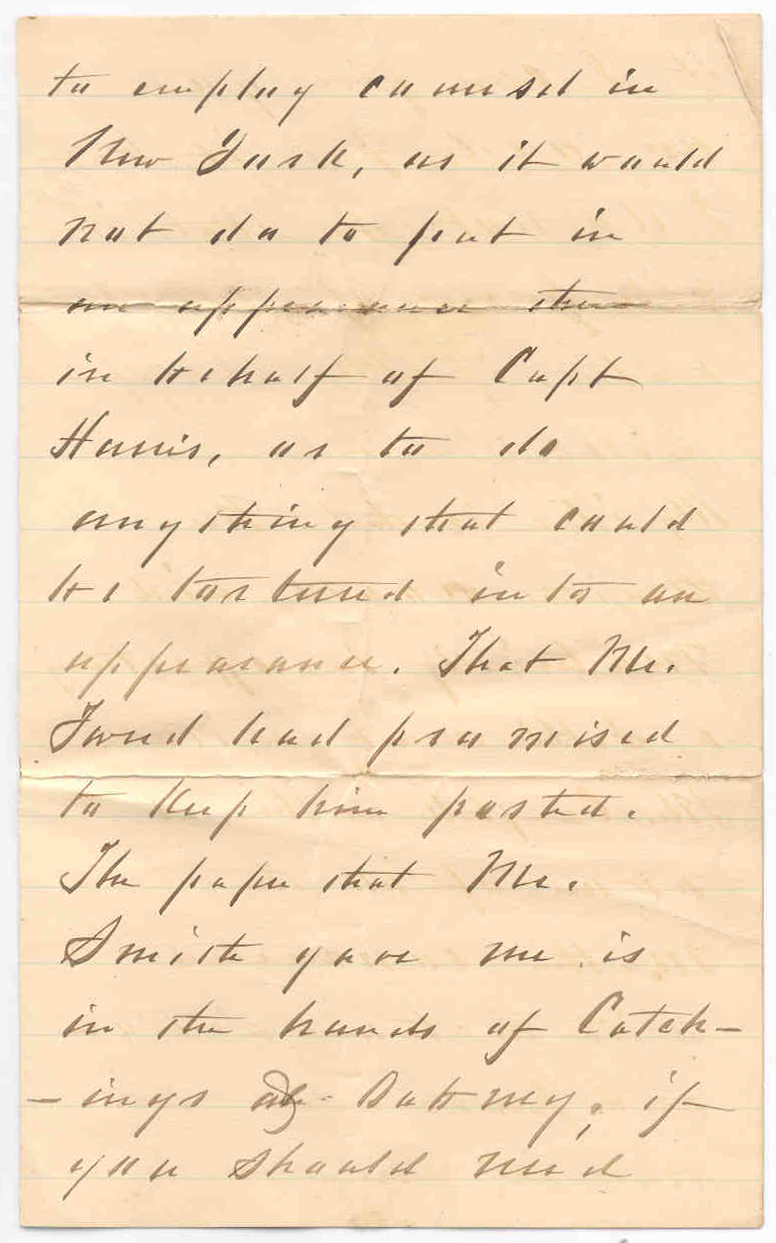 to employ counsel in
New York, as it would
not do to put in
an appearance there
in behalf of Capt
Harris, or to do
anything that could
be tortured into an
appearance. That Mr.
Tweed had promised
to keep him posted.
The paper that Mr.
Smith gave me is
in the hands of Catch-
-ings & Dabney, if
you should need